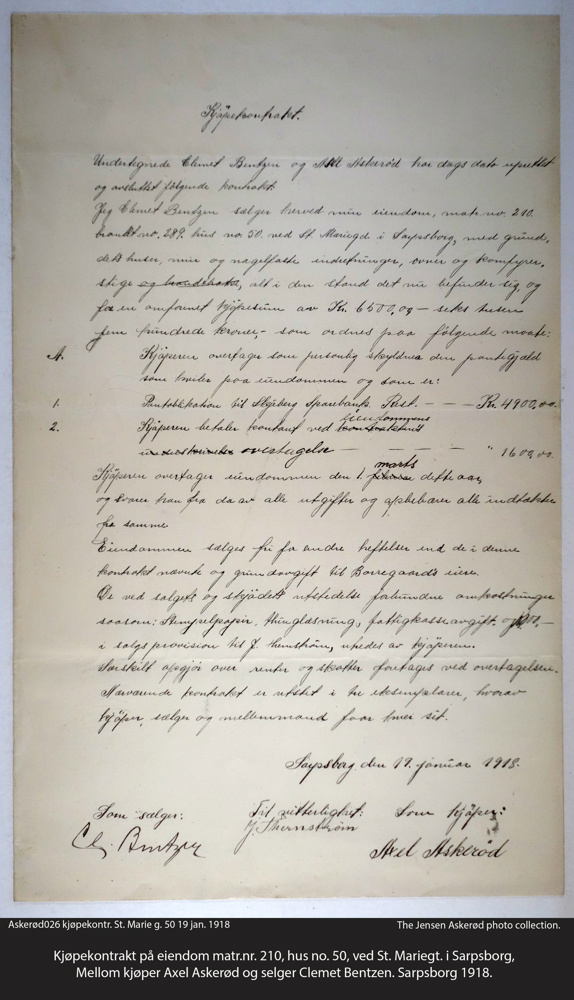 Kjöpekontrakt.
Undertegnede Clemet Bentzen og Axel Askerød har dags dato oprettet
og avsluttet fölgende kontrakt:
Jeg Clemet Bentzen sælger herved min eiendom, matr. no. 210.
no. 289. hus no. 50. ved St. Mariegd i Sarpsborg, med grund,
dets huser, mur og nagelfaste indretninger, ovner og komfyrer,
stige alt i den stand det nu befinder sig, og
for en omforenet kjöpesum av Kr. 6500,00 – seks tusen
fem hundrede kroner,- som ordnes paa fölgende maate:
A. Kjöperen overtager som personlig skyldner den pantegjæld
som hviler paa eiendommen og som er:
1. Pantoblikation til Sparebank. Rest. — — Kr. 4900,00.
2. Kjöperen betaler kontant ved eiendommens
overtagelse — — — " 1600,00
Kjöperen overtager eiendommen den 1. marts dette aar,
og svarer han fra da av alle utgifter og oppebærer alle indtækter
fra samme
Eiendommen sælges fri for andre heftelser end de i denne
kontrakt nævnte og grundavgift til Borregaards eiere.
De ved salget og skjödets utstedelse forbundne omkostninger
saasom: Stempelpapir, thinglæsning, fattigkasseavgift. og
i salgsprovision til J. Thernström, utredes av kjöperen.
Særskilt opgjör over renter og skatter foretages ved overtagelsen.
Nærværende kontrakt er utstet i tre eksemplarer, hvorav
kjöper, sælger og mellemmand faar hver sit.
Sarpsborg den 19. januar 1918.
Som sælger: Til vitterlighet: Som kjöper:
Cl. Bentzen J. Thernström Axel Askeröd
Askerød026 kjøpekontr. St. Marie g. 50 19 jan. 1918
The Jensen Askerød photo collection.
Kjøpekontrakt på eiendom matr.nr. 210, hus no. 50, ved St. Mariegt. i Sarpsborg,
Mellom kjøper Axel Askerød og selger Clemet Bentzen. Sarpsborg 1918.